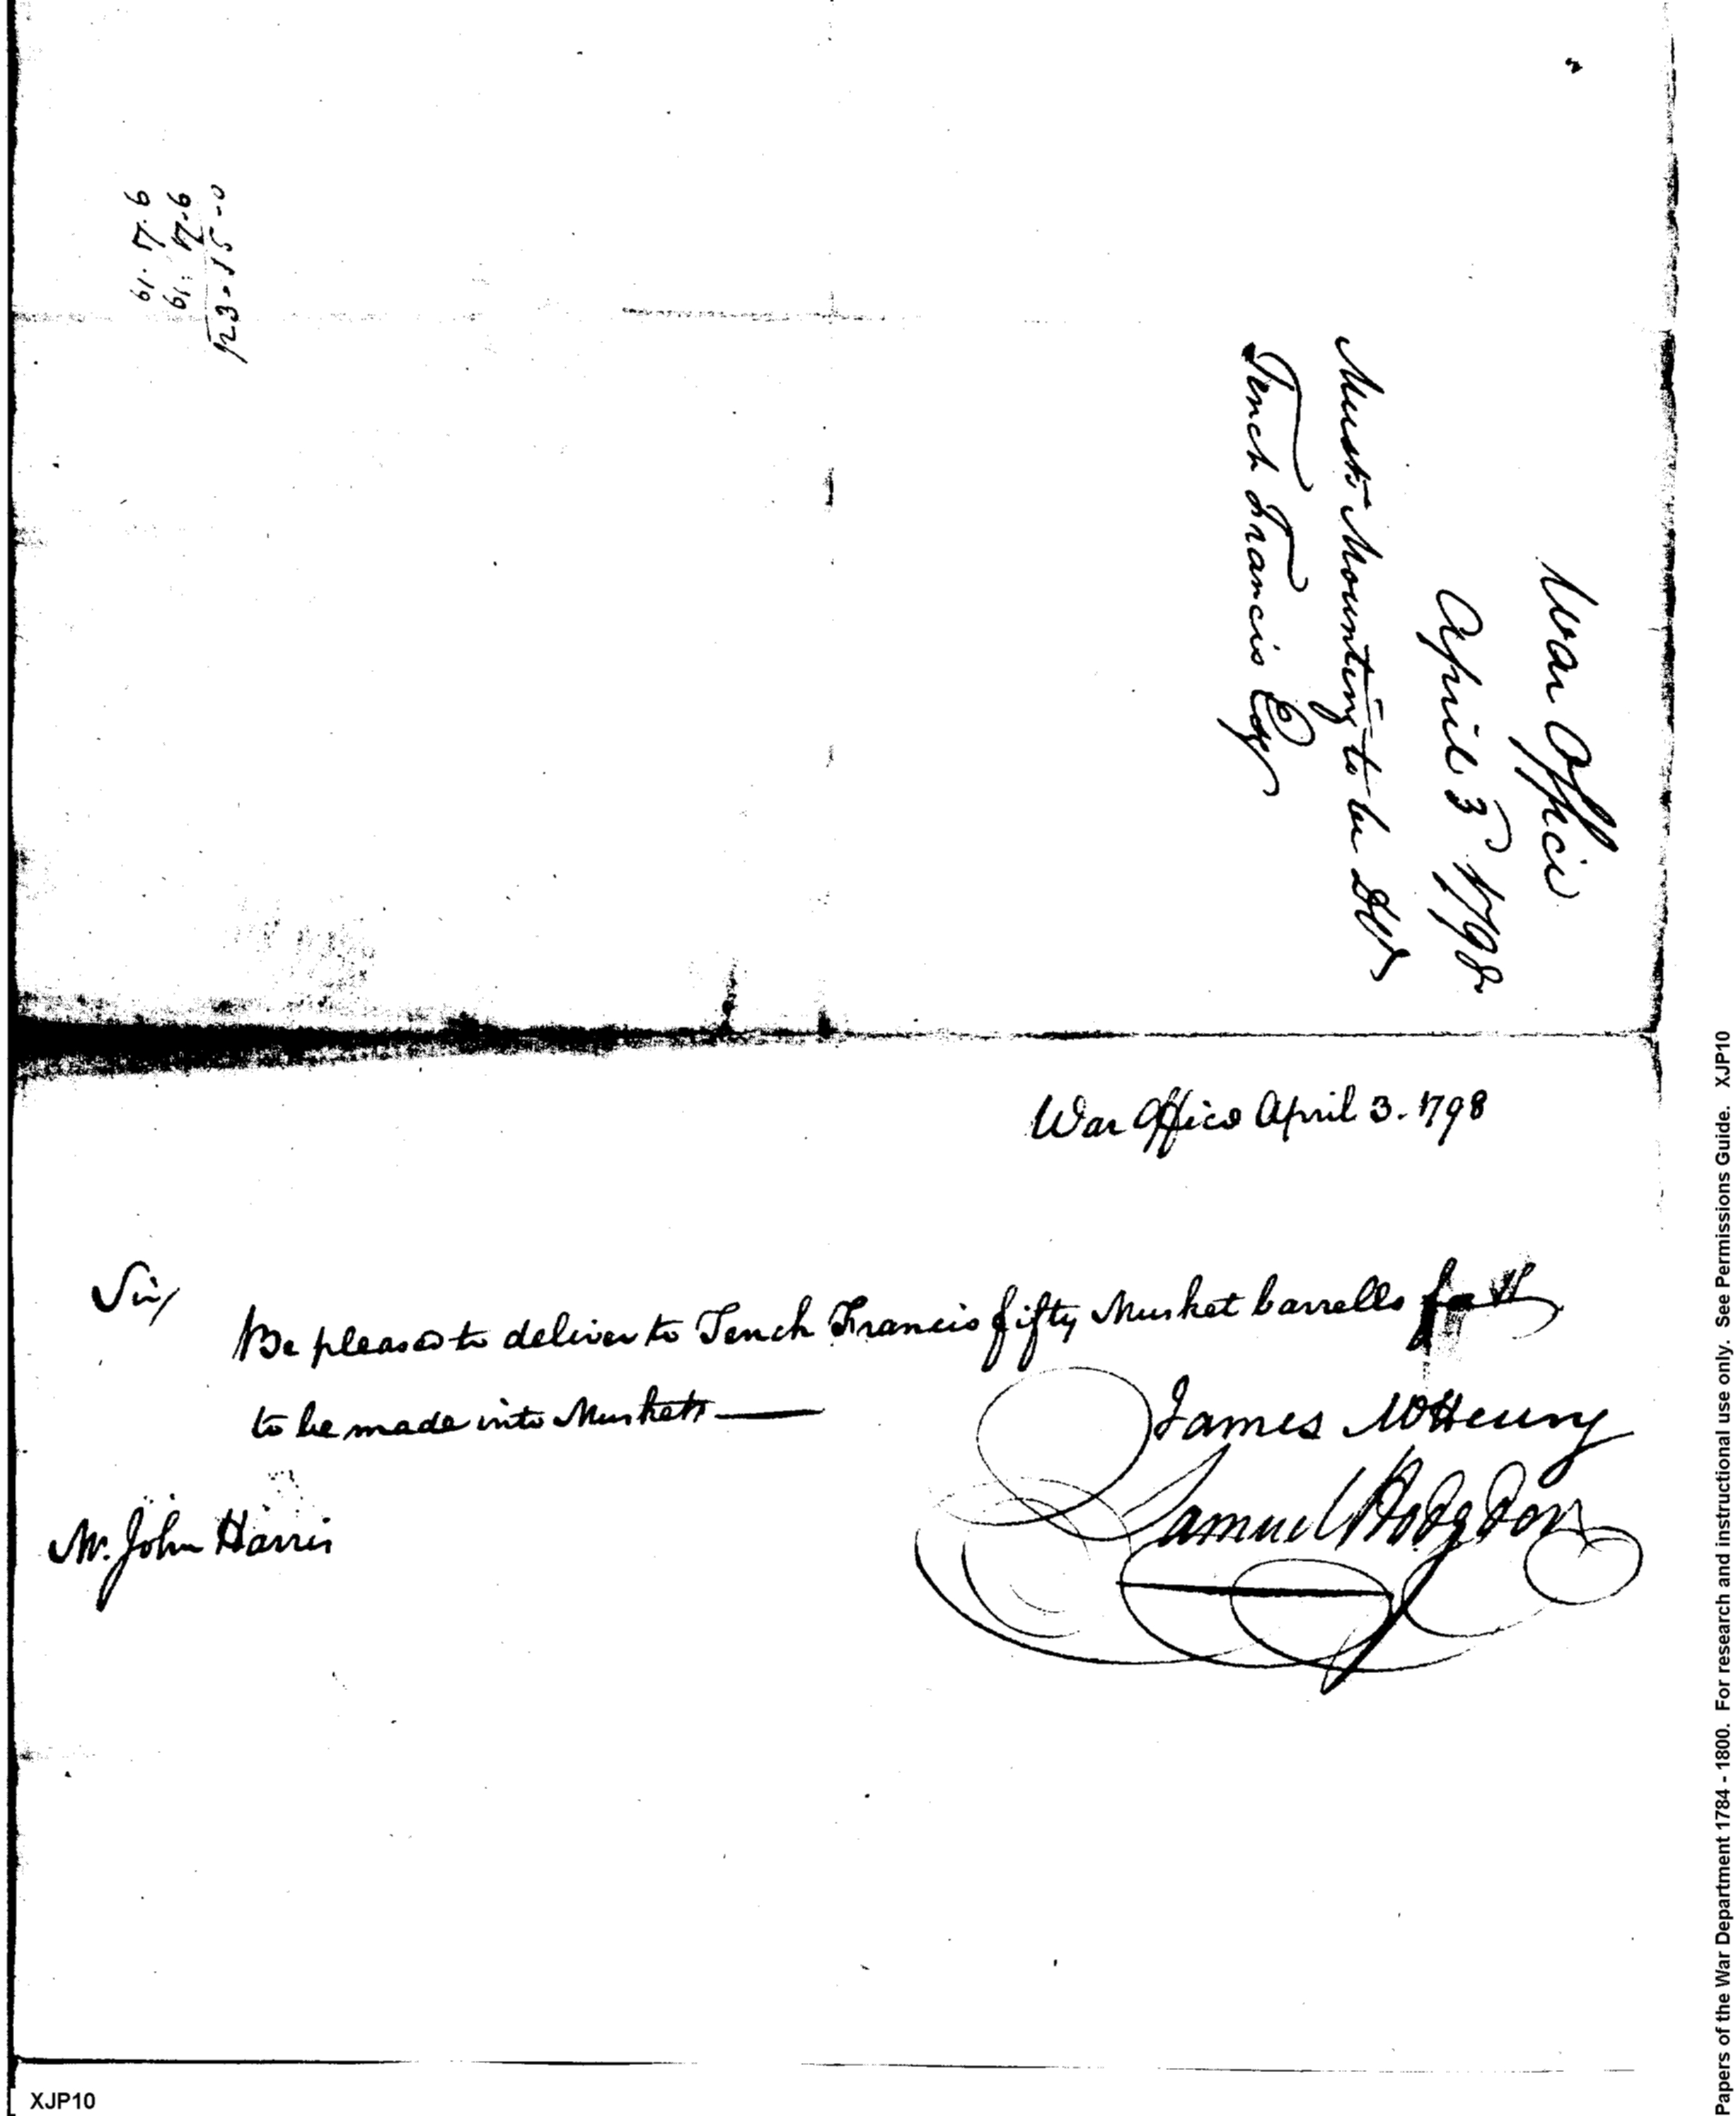 War Office
April 3 1798
Muskt Mounting to be
Tench Francis Esqr
War Office April 3. 1798
Sir/
Be pleased to deliver to Tench Francis fifty Musket barrells
to be made into Muskets
James McHenry
Samuel Hodgdon
Mr. John Harris
XJP10
Papers of the War Department 1784 - 1800. For research and instructional use only. See Permissions Guide. XJP10